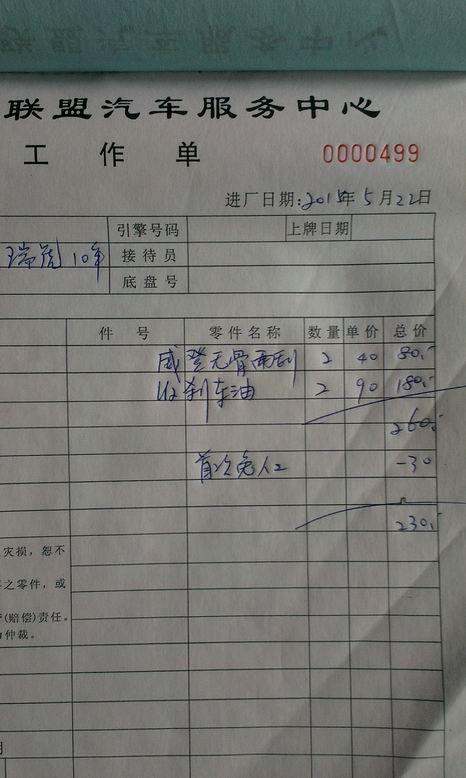 联盟汽车服务中心
联盟汽车服务中心
工作单 0000499
进厂日期:2015年5月22日
引擎号码 上牌日期
瑞虎10年 接待员
底盘号
件号 零件名称 数量 单价 总价
威登无骨雨刮 2 40 80.-
刹车油 2 90 180.-
260.-
首次免人工 -30
230.-
灾损,恕不
之零件,或
(赔偿)责任。
仲裁。